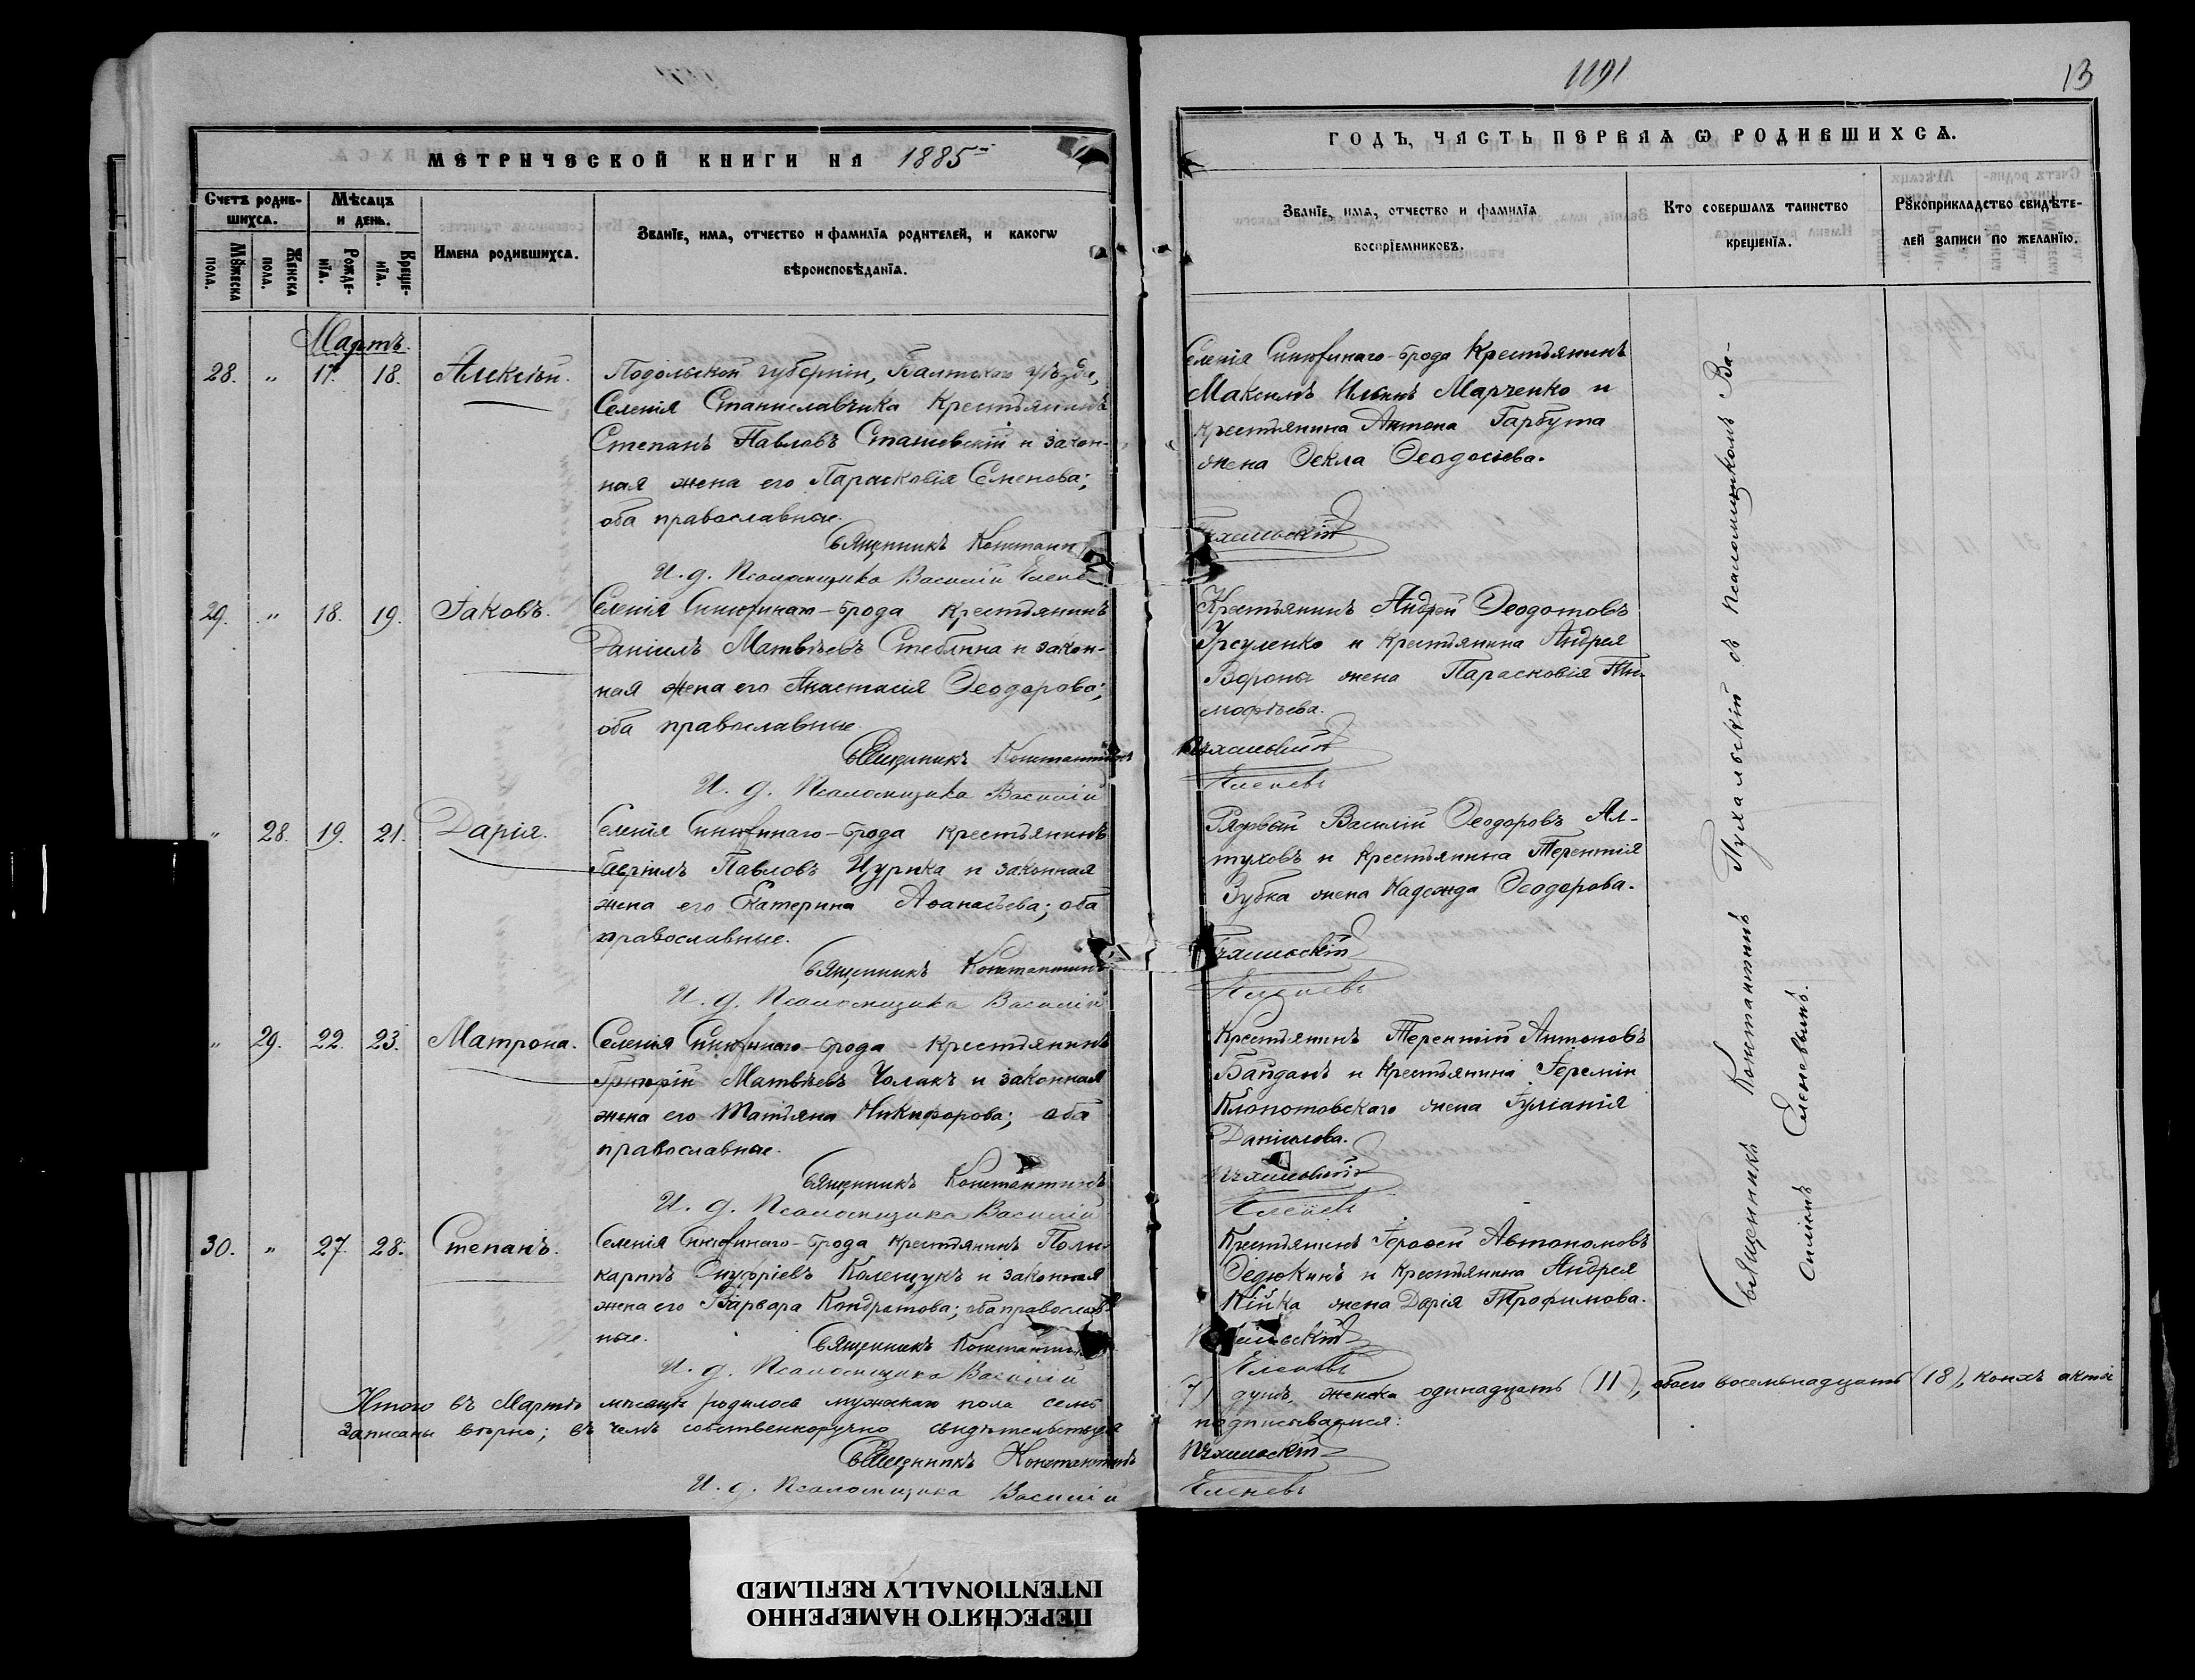 1191
13
МЕТРИЧЕСКОЙ КНИГИ НА 1885й
ГОДЪ, ЧАСТЬ ПЕРВАЯ Ѡ РОДИВШИХСѦ.
Счетъ родив-
шихсѧ.
Мѣсѧцъ
и день.
Мꙋжеска
пола.
Женска
пола.
Рожде-
нїѧ.
Креще-
нїѧ.
Имена родившихсѧ.
Званїе, имѧ, отчество и фамилїѧ родителей, и какогѡ
вѣроисповѣданїѧ.
Званїе, имѧ, отчество и фамилїѧ
воспрїемниковъ.
Кто совершалъ таинство
крещенїѧ.
Рꙋкоприкладство свидѣте-
лей записи по желанїю.
Мартъ.
28. " 17. 18. Алексѣй.
Подольской губерніи, Балтскаго уѣзда,
Селенія Станиславчика Крестьянинъ
Степанъ Павловъ Сташевскій и закон-
ная жена его Парасковія Семенова;
оба православные.
Священникъ Константи
И. д. Псаломщика Василій Елене
Селенія Синюхинаго-брода Крестьянинъ
Максимъ Ильинъ Марченко и
крестьянина Антона Гарбуза
жена Ѳекла Ѳеодосіева.
Пухальскій
29. " 18. 19. Іаковъ.
Селенія Синюхинаго-брода крестьянинъ
Даніилъ Матвѣевъ Стеблина и закон-
ная жена его Анастасія Ѳеодорова;
оба православные.
Священникъ Константинъ
И. д. Псаломщика Василій
Крестьянинъ Андрей Ѳеодотовъ
Урсуленко и крестьянина Андрея
Вороны жена Парасковія Ти-
моѳѣева.
Пухальскій
Еленевъ
" 28. 19. 21. Дарія.
Селенія Синюхинаго-брода крестьянинъ
Гавріилъ Павловъ Цурка и законная
жена его Екатерина Аѳанасьева; оба
православные.
Священникъ Константинъ
И. д. Псаломщика Василій
Рядовый Василій Ѳеодоровъ Ал-
туховъ и крестьянина Терентія
Зубка жена Надежда Ѳеодорова.
Пухальскій
Еленевъ
" 29. 22. 23. Матрона.
Селенія Синюхинаго-брода крестьянинъ
Григорій Матвѣевъ Чолакъ и законная
жена его Татьяна Никифорова; оба
православные.
Священникъ Константинъ
И. д. Псаломщика Василій
Крестьянинъ Терентій Антоновъ
Байданъ и крестьянина Іереміи
Клопотовскаго жена Іуліанія
Даніилова.
Пухальскій
Еленевъ
30. " 27. 28. Степанъ.
Селенія Синюхинаго-брода крестьянинъ Поли-
карпъ Онуфріевъ Колещукъ и законная
жена его Варвара Кондратова; оба православ-
ные.
Священникъ Константинъ
И. д. Псаломщика Василій
Крестьянинъ Іероѳей Автономовъ
Ѳедюкинъ и крестьянина Андрея
Кійка жена Дарія Трофимова.
Пухальскій
Еленевъ
Священникъ Константинъ Пухальскій съ псаломщикомъ Ва-
силіемъ Еленевымъ.
Итого въ Мартѣ мѣсяцѣ родилось мужескаго пола семь (7) душъ, женска одинадцать (11), обоего восемьнадцать (18), коихъ акты
записаны вѣрно; въ чемъ собственноручно свидѣтельствуя подписываемся:
Священникъ Константинъ Пухальскій
И. д. Псаломщика Василій Еленевъ
ПЕРЕСНЯТО НАМЕРЕННО
INTENTIONALLY REFILMED